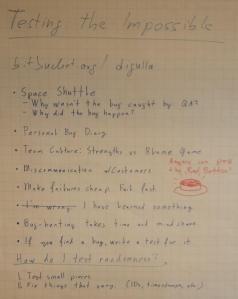 Testing the Impossible
bitbucket.org/digulla
• Space Shuttle
- Why wasn't the bug caught by QA?
- Why did the bug happen?
• Personal Bug Diary
• Team Culture: Strengths vs Blame Game
• Miscommunication w/Customers
Anyone can press
the "Red Button"
• Make failures cheap. Fail fast
• I'm wrong I have learned something
• Bug-hunting takes time and mindshare
• If you find a bug, write a test for it
How do I test randomness?
1. Test small pieces
2. Fix things that vary. (IDs, timestamps, etc.)